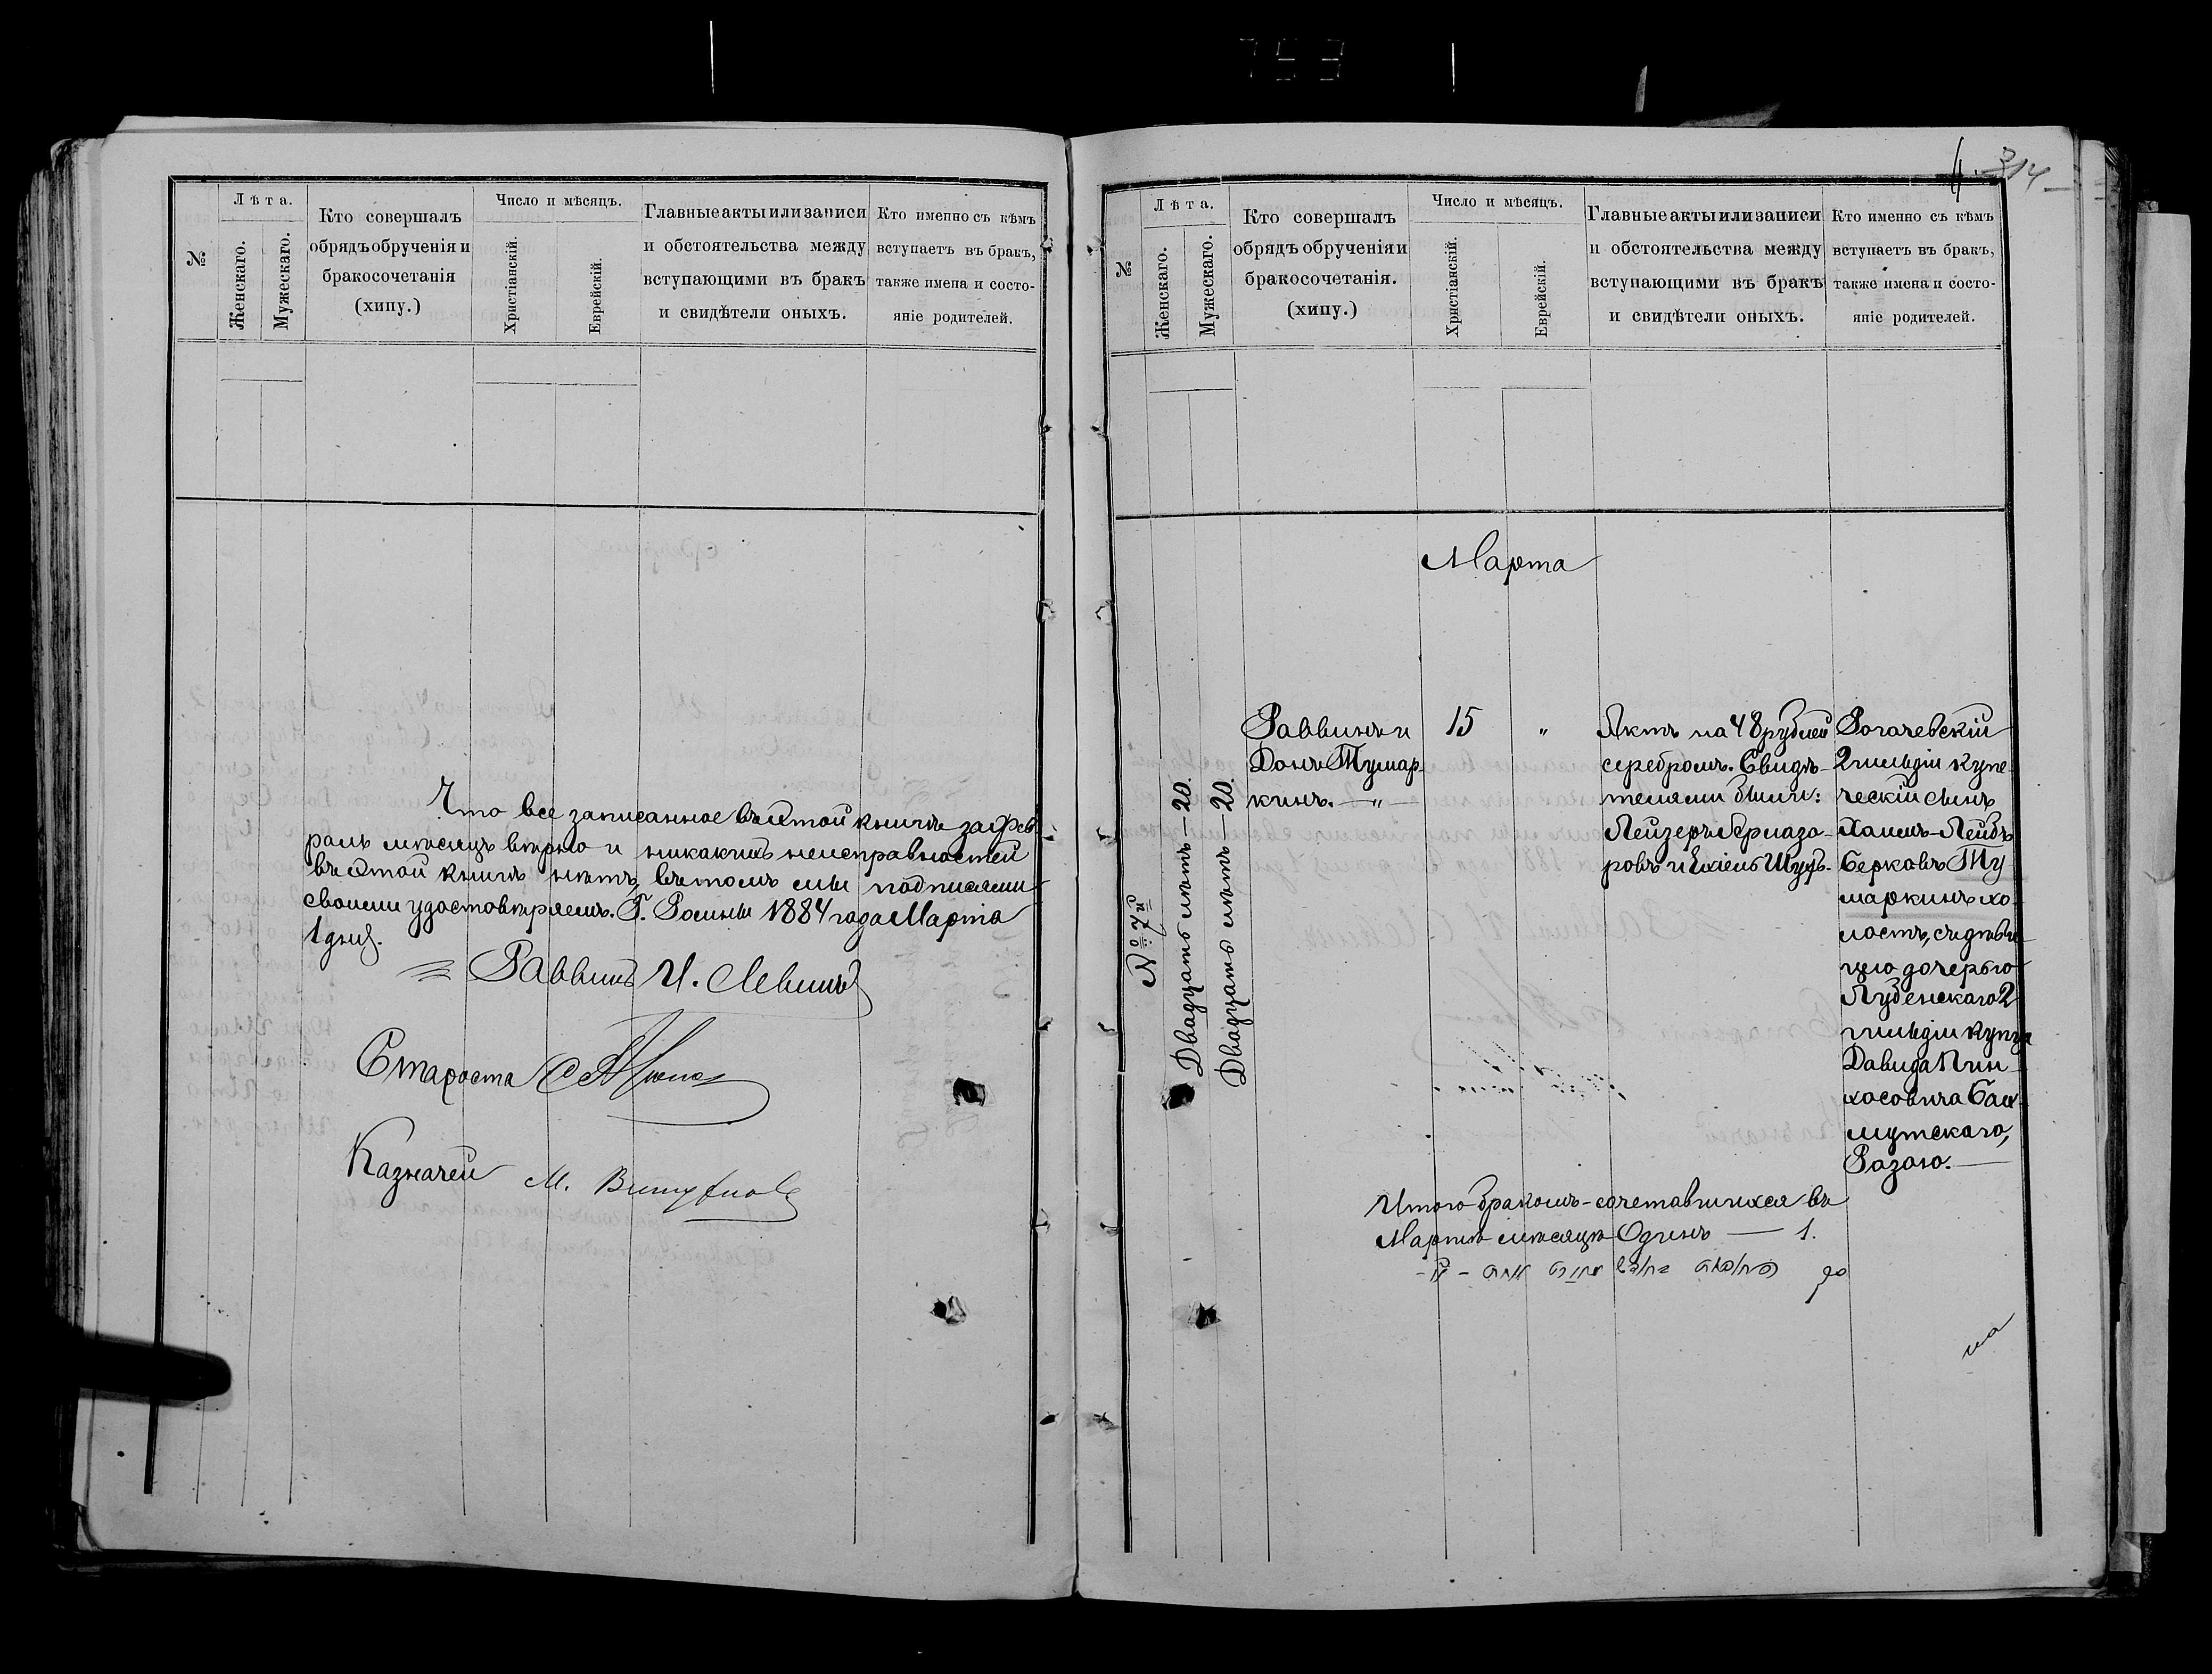 №
Лѣта.
Женскаго.
Мужескаго.
Кто совершалъ
обрядъ обрученія и
бракосочетанія
(хипу.)
Число и мѣсяцъ.
Христіанскій.
Еврейскій.
Главные акты или записи
и обстоятельства между
вступающими въ бракъ
и свидѣтели оныхъ.
Кто именно съ кѣмъ
вступаетъ въ бракъ,
также имена и состо-
яніе родителей.
Что все записанное въ этой книгѣ за Фев
раль мѣсяцъ вѣрно и никакихъ неисправностей
въ этой книгѣ нѣтъ, въ томъ мы подписями
своими удостовѣряемъ. Г. Ромны 1884 года Марта
1 дня.
Раввинъ И. Левинъ
Староста
Казначей М.
4. 314
№
Лѣта.
Женскаго.
Мужескаго.
Кто совершалъ
обрядъ обрученія и
бракосочетанія.
(хипу.)
Число и мѣсяцъ.
Христіанскій.
Еврейскій.
Главные акты или записи
и обстоятельства между
вступающими въ бракъ
и свидѣтели оныхъ.
Кто именно съ кѣмъ
вступаетъ въ бракъ,
также имена и состо-
яніе родителей.
Марта
№ 7й
Двадцать лѣтъ — 20.
Двадцать лѣтъ — 20.
Раввинъ и
Донъ Тумар
кинъ. — „ —
15
„
Актъ на 48 рублей
серебромъ. Свидѣ-
телями были:
Лейзеръ Гермазо-
ровъ и Ехіель Шубъ.
Рогачевскій
2 гильдіи купе
ческій сынъ
Хаимъ-Лейбъ
Берковъ Ту
маркинъ хо-
лостъ, съ дѣви
цею дочерью
Лубенскаго 2
гильдіи купца
Давида Пин
хосовича Бах
мутскаго,
Розою. —
Итого бракомъ-сочетавшихся въ
Мартѣ мѣсяцѣ Одинъ — 1.
на